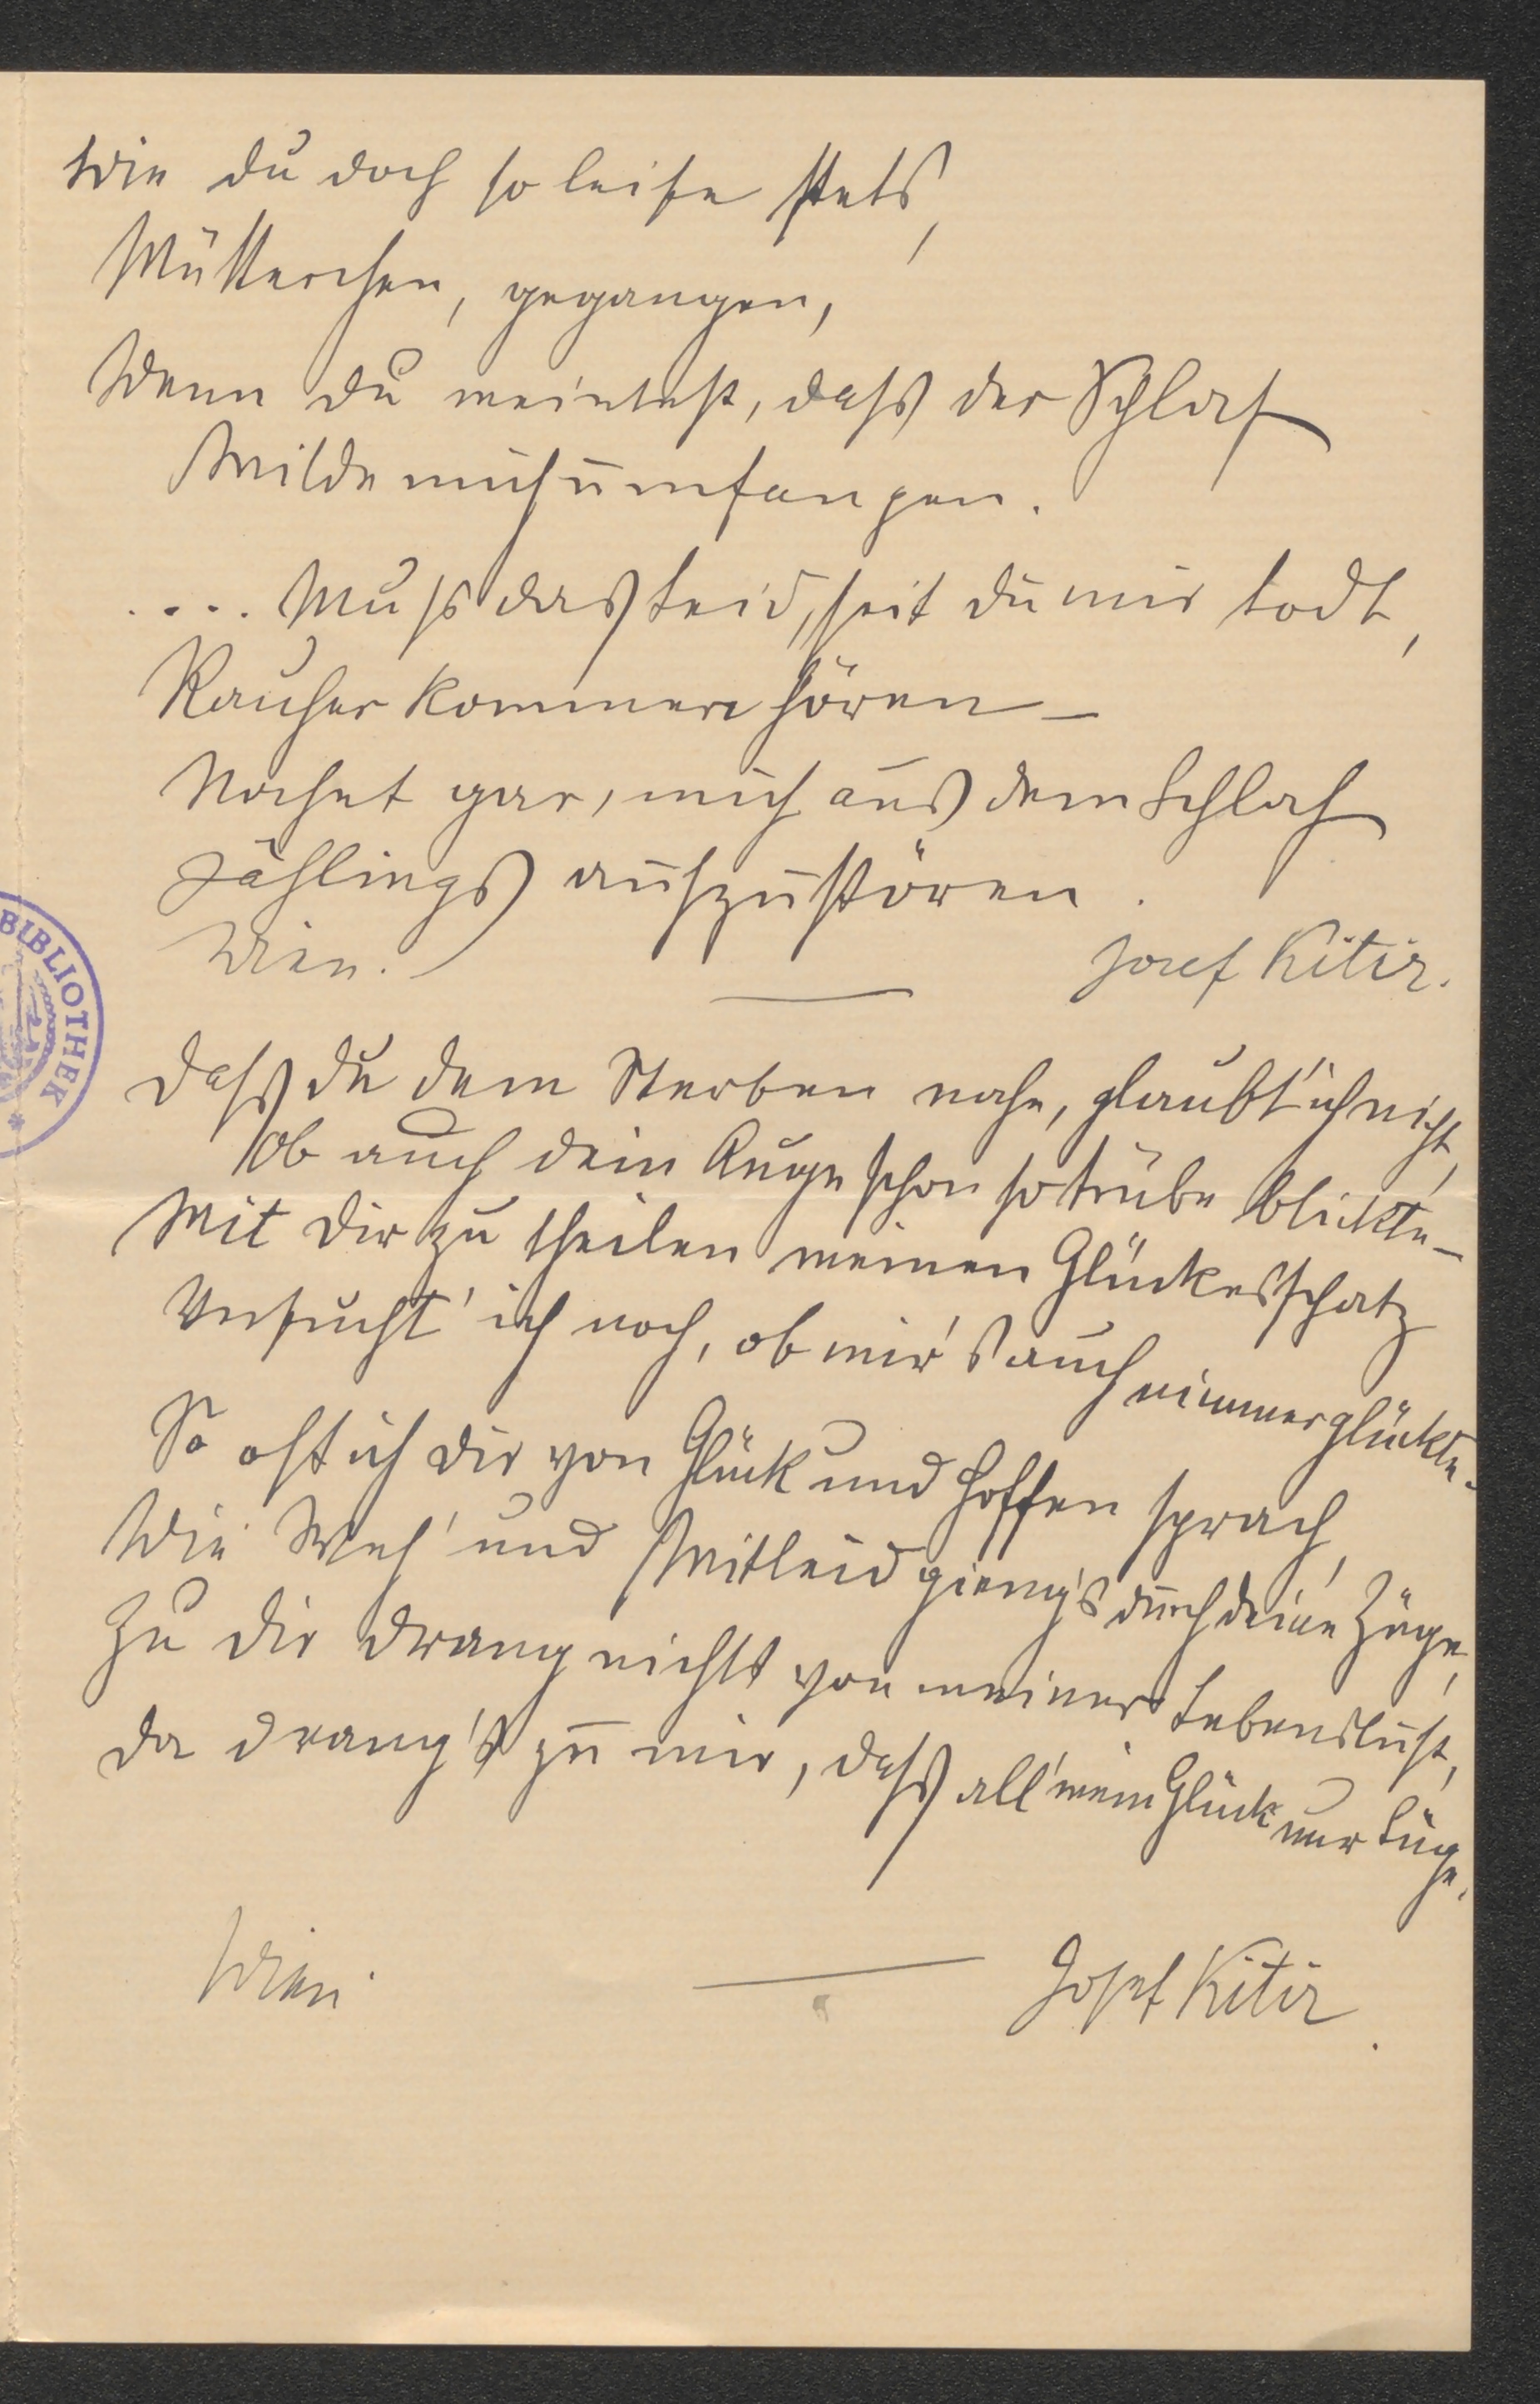 Wie du doch so leise stets,
Mütterchen, gegangen,
Wenn du meintest, dass der Schlaf
Milde mich umfangen.
.... Muss das Leid, seit du mir todt,
Rauher kommen hören –
Nachts gar, mich aus dem Schlaf
Jählings aufzustören.
Wien. Josef Kitir.
BIBLIOTHEK
Dass du dem Sterben nahe, glaubt' ich nicht,
Ob auch dein Auge schon so trübe blickte –
Mit dir zu theilen meinen Glückesschatz
Versucht' ich noch, ob mir's auch nimmer glückte.
So oft ich dir von Glück und Hoffen sprach,
Wie Weh' und Mitleid gieng's durch deine Züge,
Zu dir drang nichts von meiner Lebenslust,
Da drang's zu mir, dass all' mein Glück nur Lüge.
Wien. Josef Kitir.